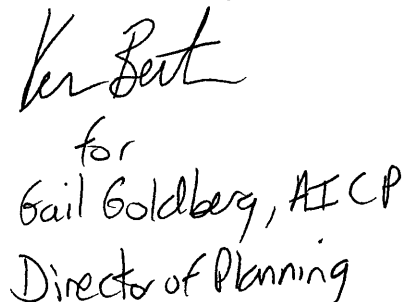 Ken Bert
for
Gail Goldberg, AICP
Director of Planning